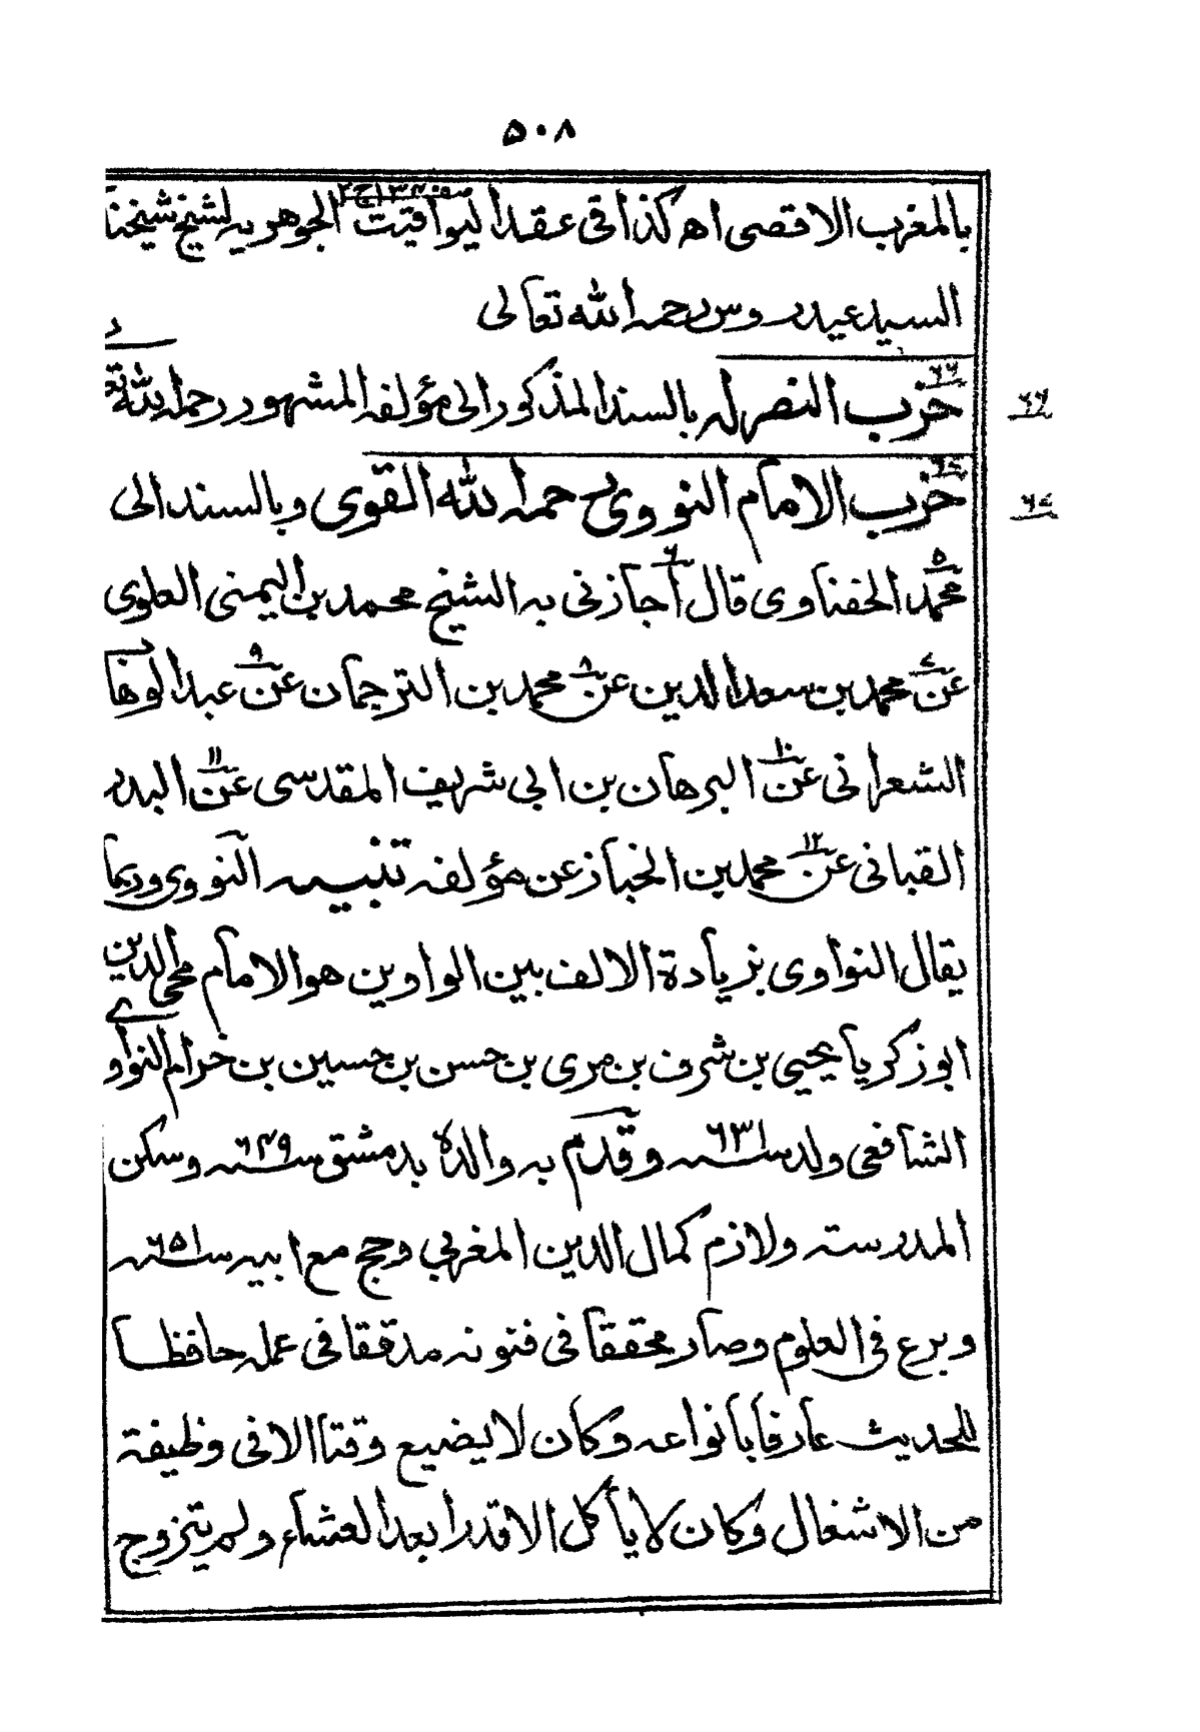 ٥٠٨
بالمغرب الاقصى اھ كذا فى عقد اليواقيت الجوهريه لشيخ شيخنا
السيد عيدروس رحمه الله تعالى
٦٦ حزب النصر له بالسند المذكور الى مؤلفه المشهور رحمه الله تعالى
٦٧ حزب الامام النووى رحمه الله القوى وبالسند الى
محمد الحفناوى قال اجازنى به الشيخ محمد بن اليمنى العلوى
عن محمد بن سعد الدين عن محمد بن الترجمان عن عبد الوهاب
الشعرانى عن البرهان بن ابى شريف المقدسى عن البدر
القبانى عن محمد بن الخباز عن مؤلفه تنبيه النووى وربما
يقال النواوى بزيادة الالف بين الواوين هو الامام محى الدين
ابو زكريا يحيى بن شرف بن مرى بن حسن بن حسين بن حزام النواوى
الشافعى ولد سنه ٦٣١ وقدم به والده بدمشق سنه ٦٤٩ وسكن
المدرسته ولازم كمال الدين المغربى وحج مع ابيه سنه ٦٥١
وبرع فى العلوم وصار محققا فى فنونه مدققا فى عمله حافظا
للحديث عارفا بانواعه وكان لا يضيع وقتا الا فى وظيفة
من الاشغال وكان لا يأكل الا قدرا بعد العشاء ولم يتزوج